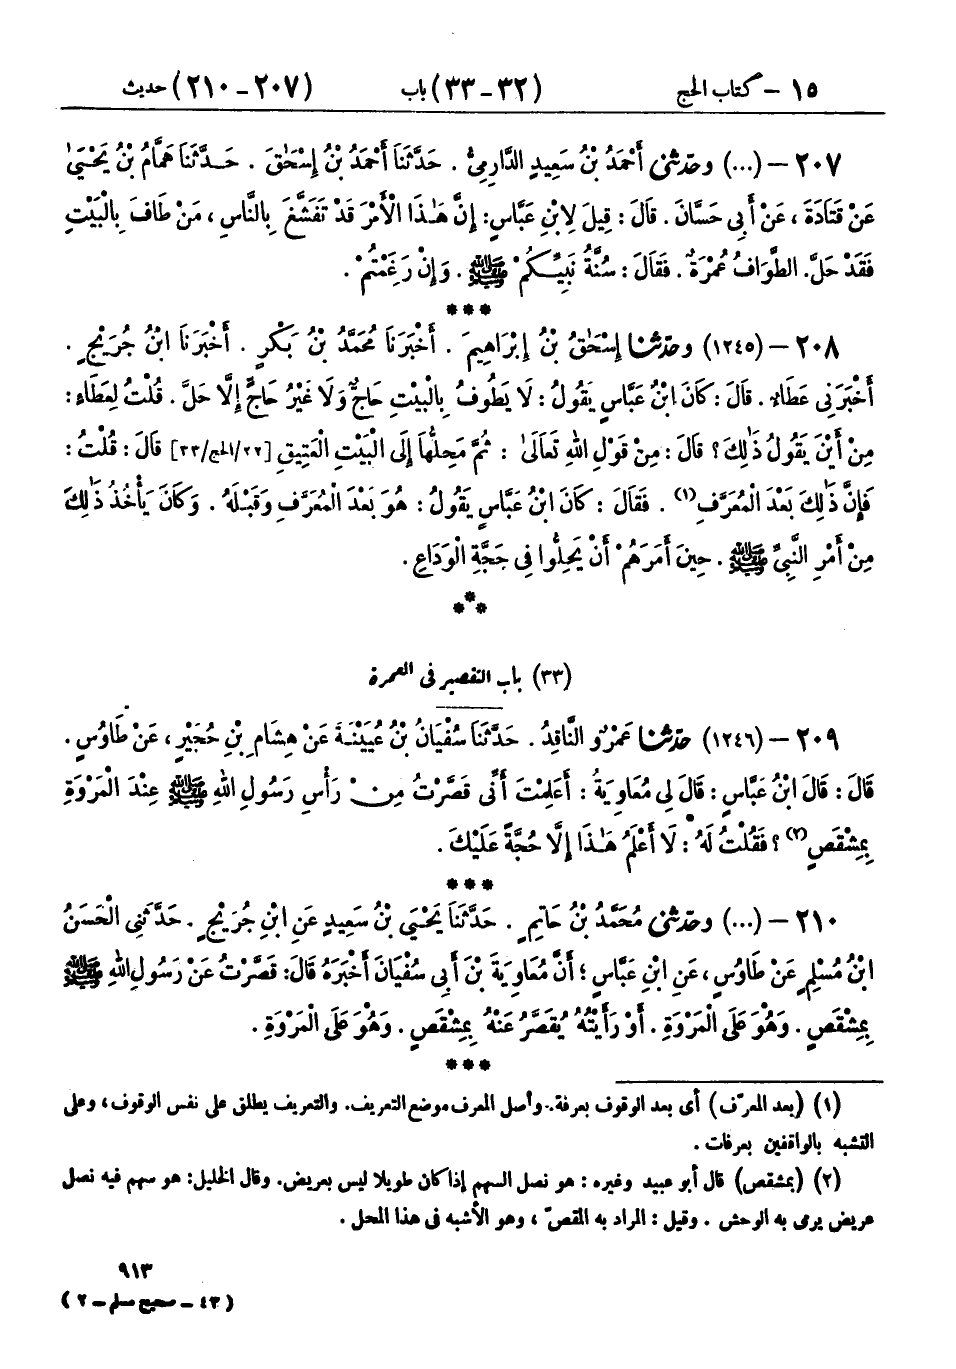 ١٥ – كتاب الحج (٣٢ – ٣٣) باب (٢٠٧ – ٢١٠) حديث
٢٠٧ – (...) وحدثني أَحْمَدُ بْنُ سَعِيدٍ الدَّارِمِيُّ . حَدَّثَنَا أَحْمَدُ بْنُ إِسْحَٰقَ . حَدَّثَنَا هَمَّامُ بْنُ يَحْيَىٰ
عَنْ قَتَادَةَ ، عَنْ أَبِي حَسَّانَ . قَالَ : قِيلَ لِابْنِ عَبَّاسٍ: إِنَّ هَٰذَا الْأَمْرَ قَدْ تَفَشَّغَ بِالنَّاسِ ، مَنْ طَافَ بِالْبَيْتِ
فَقَدْ حَلَّ. الطَّوَافُ عُمْرَةٌ . فَقَالَ : سُنَّةُ نَبِيِّكُمْ ﷺ . وَإِنْ رَغِمْتُمْ .
***
٢٠٨ – (١٢٤٥) وحدثنا إِسْحَٰقُ بْنُ إِبْرَاهِيمَ . أَخْبَرَنَا مُحَمَّدُ بْنُ بَكْرٍ . أَخْبَرَنَا ابْنُ جُرَيْجٍ .
أَخْبَرَنِي عَطَاءٌ . قَالَ : كَانَ ابْنُ عَبَّاسٍ يَقُولُ : لَا يَطُوفُ بِالْبَيْتِ حَاجٌّ وَلَا غَيْرُ حَاجٍّ إِلَّا حَلَّ . قُلْتُ لِعَطَاءٍ :
مِنْ أَيْنَ يَقُولُ ذَٰلِكَ ؟ قَالَ : مِنْ قَوْلِ اللهِ تَعَالَىٰ : ثُمَّ مَحِلُّهَا إِلَى الْبَيْتِ الْعَتِيقِ [٢٢/الحج/٣٣] قَالَ : قُلْتُ :
فَإِنَّ ذَٰلِكَ بَعْدَ الْمُعَرَّفِ (١) . فَقَالَ : كَانَ ابْنُ عَبَّاسٍ يَقُولُ : هُوَ بَعْدَ الْمُعَرَّفِ وَقَبْلَهُ . وَكَانَ يَأْخُذُ ذَٰلِكَ
مِنْ أَمْرِ النَّبِيِّ ﷺ . حِينَ أَمَرَهُمْ أَنْ يَحِلُّوا فِي حَجَّةِ الْوَدَاعِ .
***
(٣٣) باب التقصير فى العمرة
٢٠٩ – (١٢٤٦) حدثنا عَمْرٌو النَّاقِدُ . حَدَّثَنَا سُفْيَانُ بْنُ عُيَيْنَةَ عَنْ هِشَامِ بْنِ حُجَيْرٍ ، عَنْ طَاوُسٍ .
قَالَ : قَالَ ابْنُ عَبَّاسٍ : قَالَ لِي مُعَاوِيَةُ : أَعَلِمْتَ أَنِّي قَصَّرْتُ مِنْ رَأْسِ رَسُولِ اللهِ ﷺ عِنْدَ الْمَرْوَةِ
بِمِشْقَصٍ (٢) ؟ فَقُلْتُ لَهُ : لَا أَعْلَمُ هَٰذَا إِلَّا حُجَّةً عَلَيْكَ .
***
٢١٠ – (...) وحدثني مُحَمَّدُ بْنُ حَاتِمٍ . حَدَّثَنَا يَحْيَىٰ بْنُ سَعِيدٍ عَنِ ابْنِ جُرَيْجٍ . حَدَّثَنِي الْحَسَنُ
ابْنُ مُسْلِمٍ عَنْ طَاوُسٍ ، عَنِ ابْنِ عَبَّاسٍ ؛ أَنَّ مُعَاوِيَةَ بْنَ أَبِي سُفْيَانَ أَخْبَرَهُ قَالَ: قَصَّرْتُ عَنْ رَسُولِ اللهِ ﷺ
بِمِشْقَصٍ . وَهُوَ عَلَى الْمَرْوَةِ . أَوْ رَأَيْتُهُ يُقَصَّرُ عَنْهُ بِمِشْقَصٍ . وَهُوَ عَلَى الْمَرْوَةِ .
***
(١) (بعد المعرّف) أى بعد الوقوف بعرفة. وأصل المعرف موضع التعريف. والتعريف يطلق على نفس الوقوف ، وعلى
التشبه بالواقفين بعرفات .
(٢) (بمشقص) قال أبو عبيد وغيره : هو نصل السهم إذا كان طويلا ليس بعريض. وقال الخليل: هو سهم فيه نصل
عريض يرمى به الوحش . وقيل : المراد به المقصّ ، وهو الأشبه فى هذا المحل .
٩١٣
(٤٣ – صحيح مسلم – ٢)